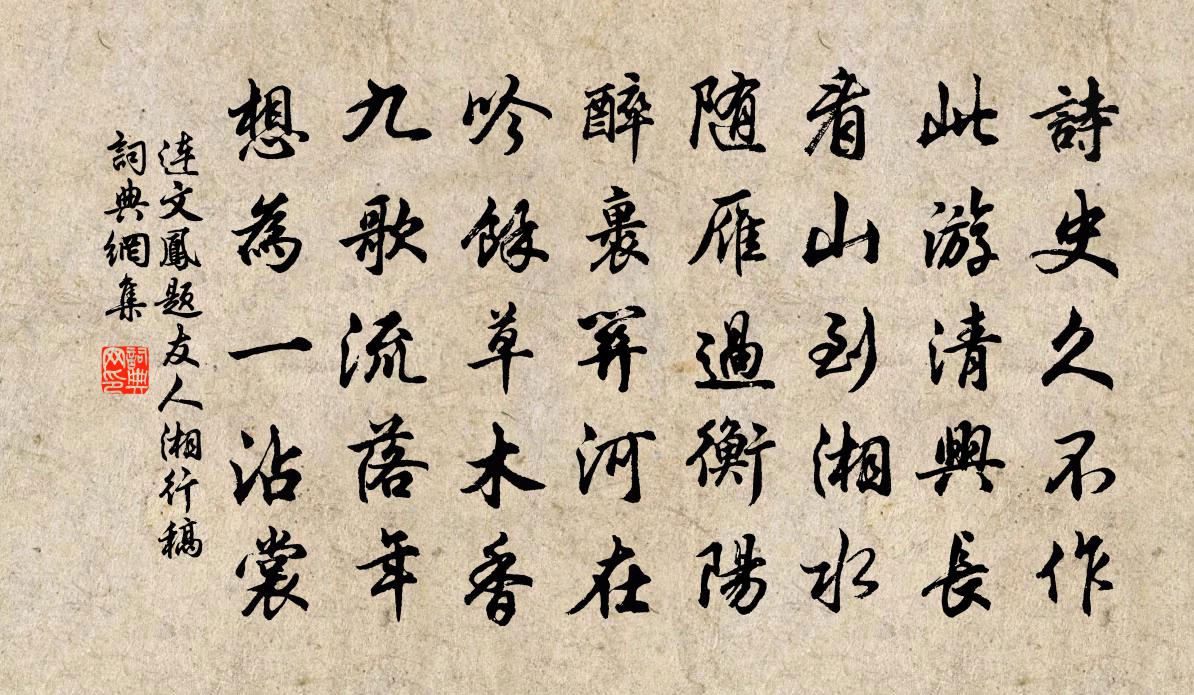 詩史久不作
此游清興長
看山到湘水
随雁過衡陽
醉裏算河在
吟餘草木香
九歌流落年
想為一沾裳
連文鳳題友人湘行稿
詞典網集
詞典网印